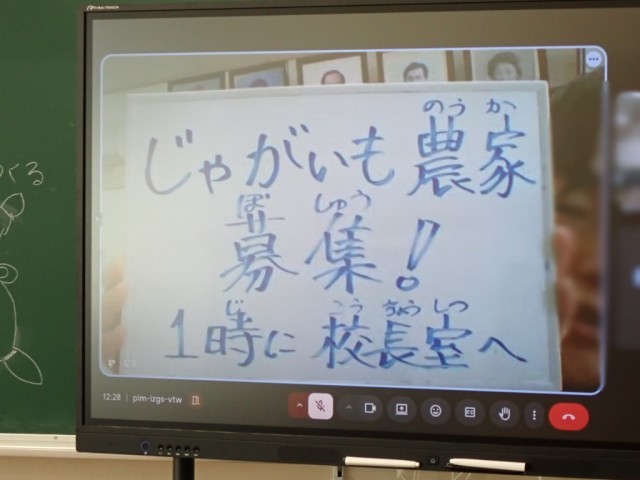 のうか
じゃがいも農家
ぼしゅう
募集!
じ こうちょうしつ
1時に 校長室へ
12:28 | pim-izgs-vtw
くる